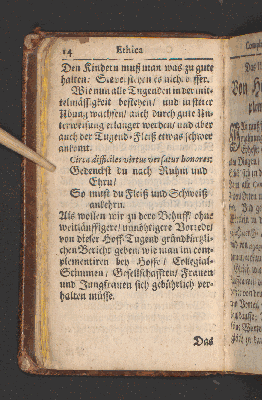 14 Ethica
Den Kindern muß man was zu gute
halten: Sie verstehen es nicht besser.
Wie nun alle Tugenden in der mit-
telmässigkeit bestehen/ und in steter
Übung wachsen/ auch durch gute Un-
terweisung erlanget werden/ und aber
auch der Tugend-Fleiß etwas schwer
ankomt.
Circa difficiles virtus versatur honores:
Gedenckst du nach Ruhm und
Ehrn/
So must du Fleiß und Schweiß
ankehrn.
Als wollen wir zu dero Behuff/ ohne
weitläufftigere/ unnöhtigere Vorrede/
von dieser Hoff-Tugend gründlichen
Bericht geben/ wie man im com-
plementiren bey Hoffe/ Collegial-
Stimmen/ Gesellschafften/ Frauen
und Jungfrauen sich gebührlich ver-
halten müsse.
Das